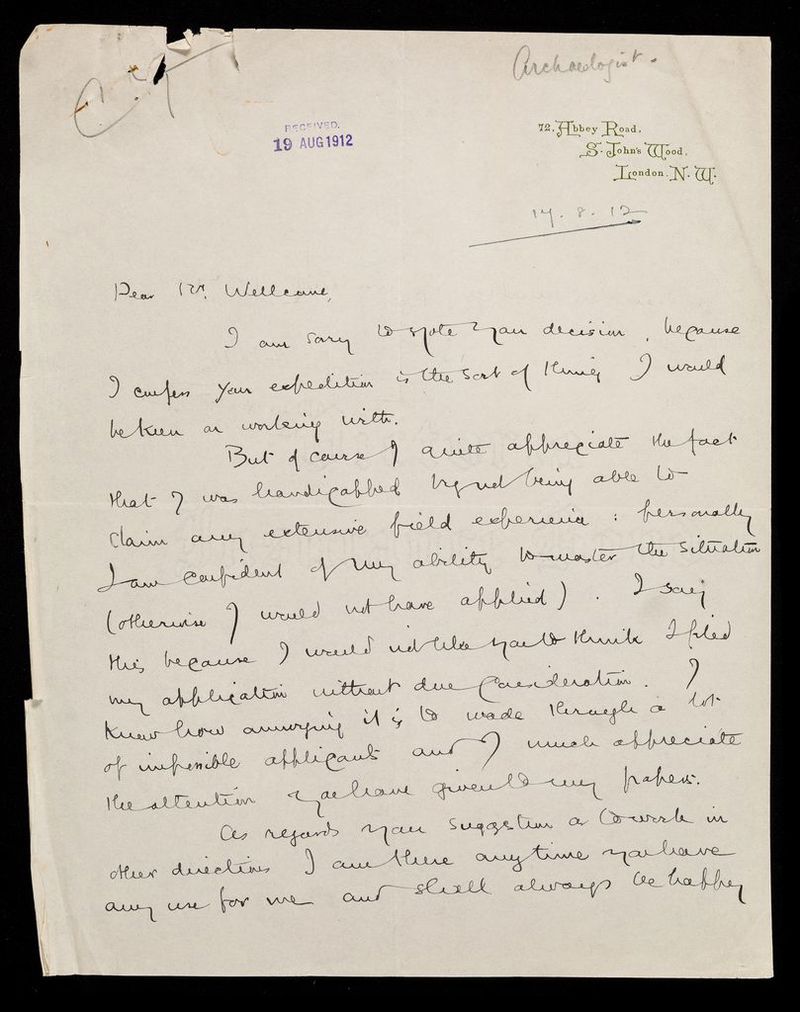 Archaeologist.
RECEIVED.
19 AUG 1912
72, Abbey Road,
St. John's Wood,
London. N. W.
17. 8. 12
Dear Mr. Wellcome,
I am sorry to note your decision, because
I confess your expedition is the sort of thing I would
be keen on working with.
But of course I quite appreciate the fact
that I was handicapped by not being able to
claim any extensive field experience : personally
I am confident of my ability to master the situation
(otherwise I would not have applied). I say
this because I would not like you to think I filed
my application without due consideration. I
know how annoying it is to wade through a lot
of impossible applicants and I much appreciate
the attention you have given to my papers.
As regards your suggestion as to work in
other directions I am there anytime you have
any use for me and shall always be happy